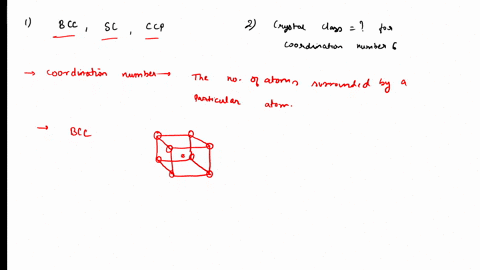 1) BCC, SC, CCP
2) Crystal class = ? for
coordination number 6
→ coordination number → The no. of atoms surrounded by a
particular atom.
→ BCC